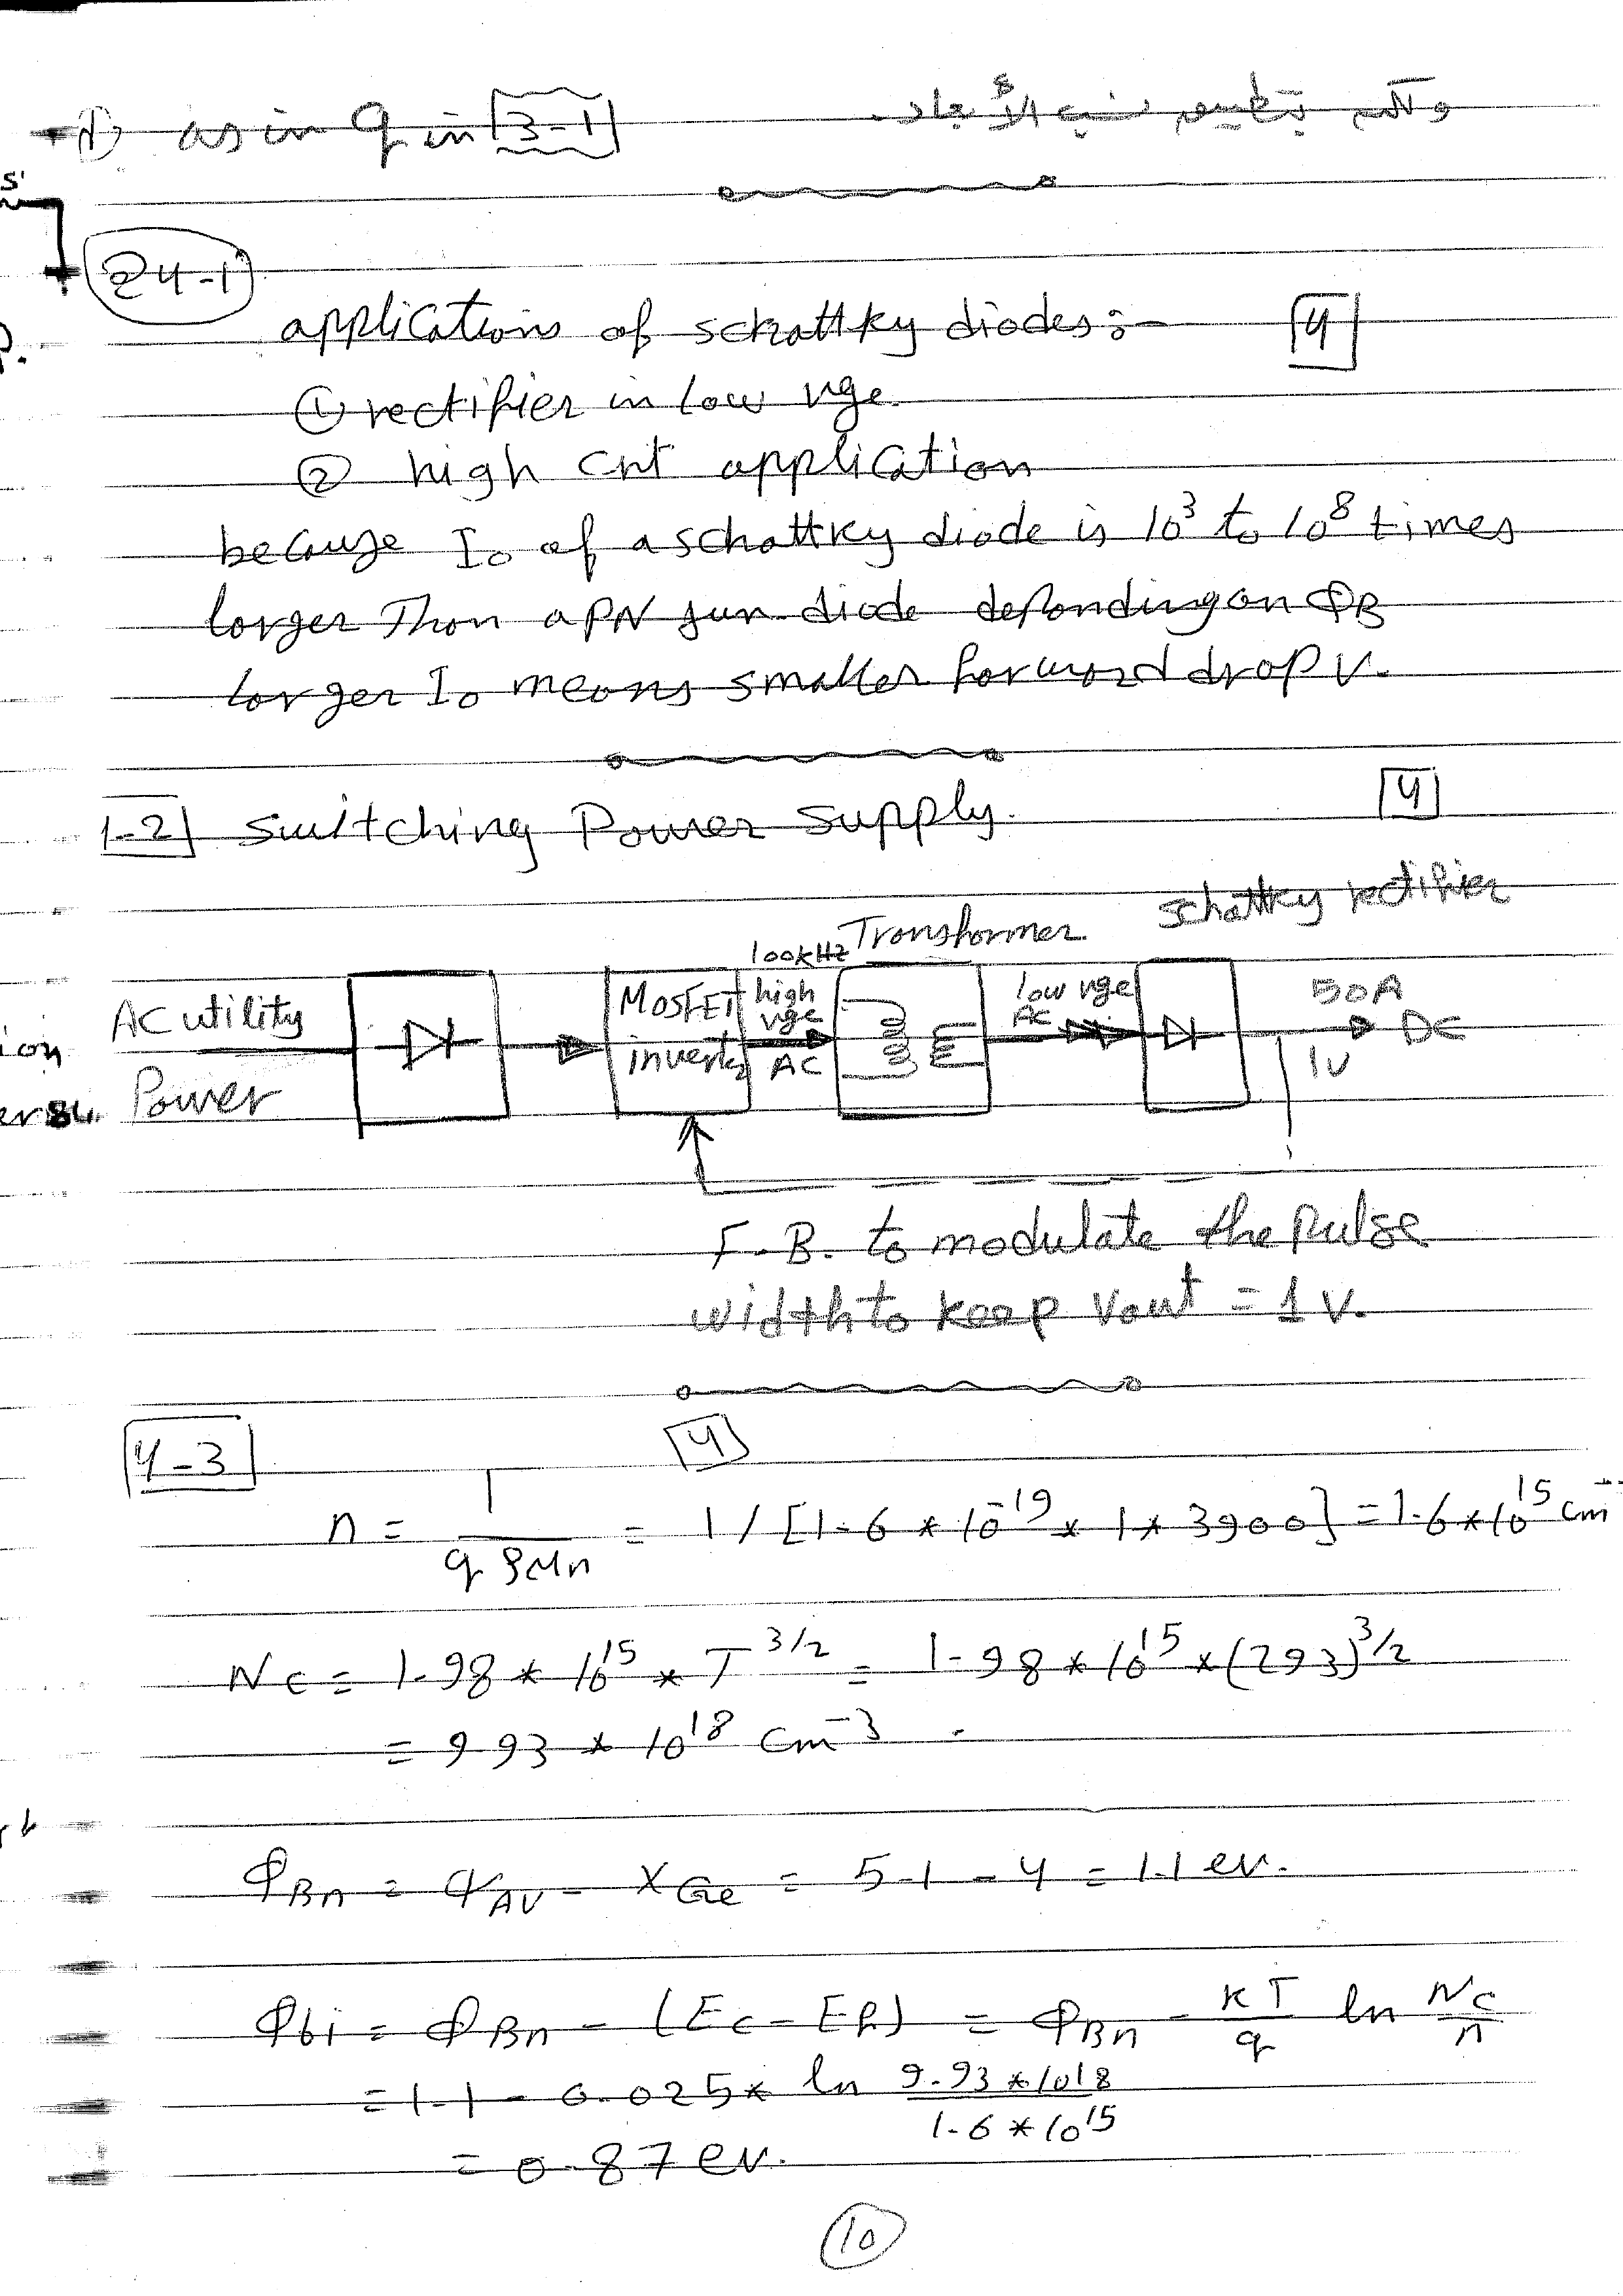 as in q in 3-1
24-1
applications of schottky diodes:- 4
① rectifier in low vge.
② high crt application
because Io of a schottky diode is 10³ to 10⁸ times
larger Than a PN jun. diode depending on ΦB
larger Io means smaller forward drop v.
1-2 Switching Power supply. 4
Schottky rectifier
100kHz Transformer
AC utility
Power
MOSFET
inverter
high
vge
AC
low vge
AC
50A
DC
1V
F.B. to modulate the Pulse
width to keep Vout = 1 V.
4-3 4
n = 1 / qρμn = 1 / [1.6 * 10⁻¹⁹ * 1 * 3900] = 1.6 * 10¹⁵ cm⁻
Nc = 1.98 * 10¹⁵ * T^3/2 = 1.98 * 10¹⁵ * (293)^3/2
= 9.93 * 10¹⁸ cm⁻³
ΦBn = ψAU - XGe = 5.1 - 4 = 1.1 ev.
Φbi = ΦBn - (Ec - Ef) = ΦBn - KT/q ln Nc/n
= 1.1 - 0.025 * ln 9.93 * 10¹⁸ / 1.6 * 10¹⁵
= 0.87 ev.
10